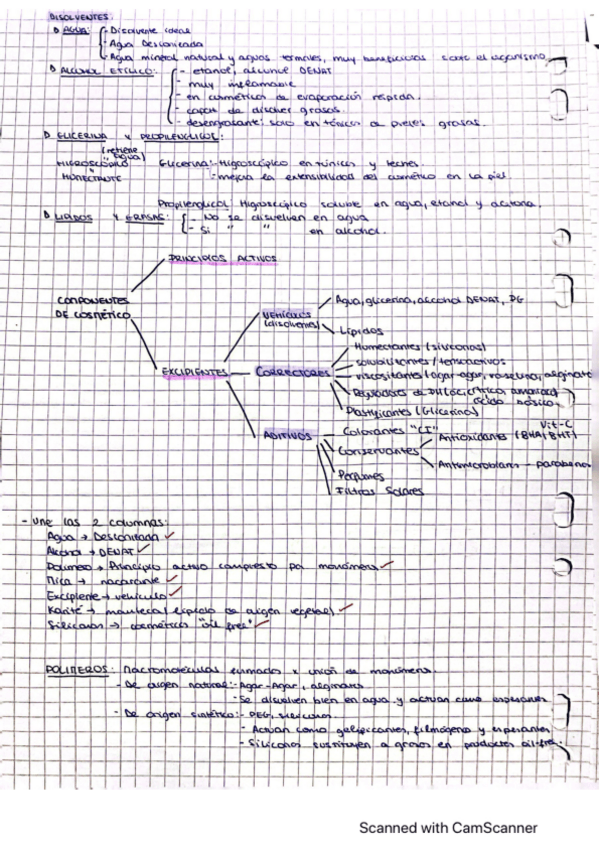 DISOLVENTES:
AGUA: - Disolvente ideal
- Agua Desionizada
- Agua mineral natural y aguas termales, muy beneficiosas sobre el organismo
ALCOHOL ETÍLICO: - etanol, alcohol DENAT
- muy inflamable
- en cosméticos de evaporación rápida.
- capaz de disolver grasas.
- desengrasante: solo en tónicos de pieles grasas.
GLICERINA Y PROPILENGLICOL:
(retiene agua)
HIGROSCÓPICO Glicerina: - Higroscópico en tónicos y leches.
HUMECTANTE - mejora la extensibilidad del cosmético en la piel.
Propilenglicol: Higroscópico soluble en agua, etanol y acetona.
LÍPIDOS Y GRASAS: - No se disuelven en agua
- Si " " en alcohol.
PRINCIPIOS ACTIVOS
COMPONENTES DE COSMÉTICO
VEHÍCULOS (disolventes)
Agua, glicerina, alcohol DENAT, PG
Lípidos
EXCIPIENTES
CORRECTORES
Humectantes (siliconas)
solubilizantes / tensioactivos
viscosizantes (agar-agar, vaselina, alginato
Reguladores de PH (ác. cítrico,
ácido básico
Plastificantes (Glicerina)
ADITIVOS
Colorantes "CI"
Vit-C
Conservantes
Antioxidantes (BHA, BHT)
Antimicrobiano - parabenos
Perfumes
Filtros Solares
- Une las 2 columnas:
Agua → Desionizada ✓
Alcohol → DENAT ✓
Polímero → Principio activo compuesto por monómeros ✓
Mica → nacarante ✓
Excipiente → vehículo ✓
Karité → manteca (lípido de origen vegetal) ✓
Siliconas → cosméticos "oil free" ✓
POLÍMEROS: Macromoléculas formadas x unión de monómeros.
- De origen natural: - Agar-Agar, alginatos
- Se disuelven bien en agua y actúan como espesantes
- De origen sintético: - PEG, siliconas.
- Actúan como gelificantes, filmógeno y espesantes
- Siliconas sustituyen a grasas en productos oil-free.
Scanned with CamScanner